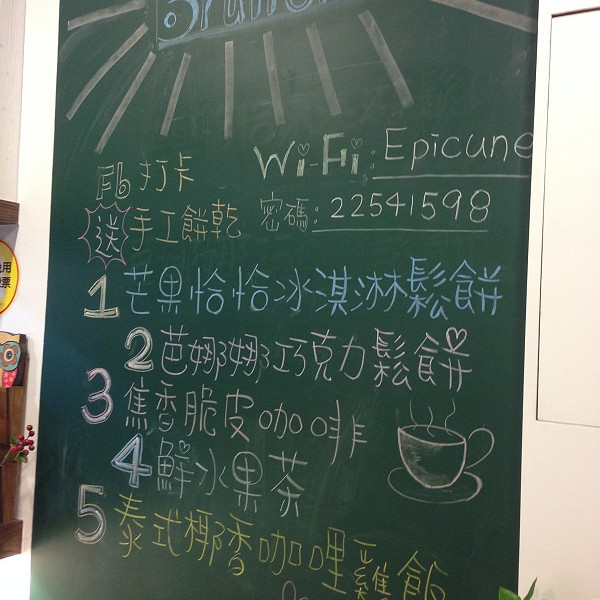 Brunch
Wi-Fi: Epicune
Fb 打卡
送 手工餅乾
密碼: 22541598
1 芒果恰恰冰淇淋鬆餅
2 芭娜娜巧克力鬆餅
3 焦香脆皮咖啡
4 鮮水果茶
5 泰式椰香咖哩雞飯